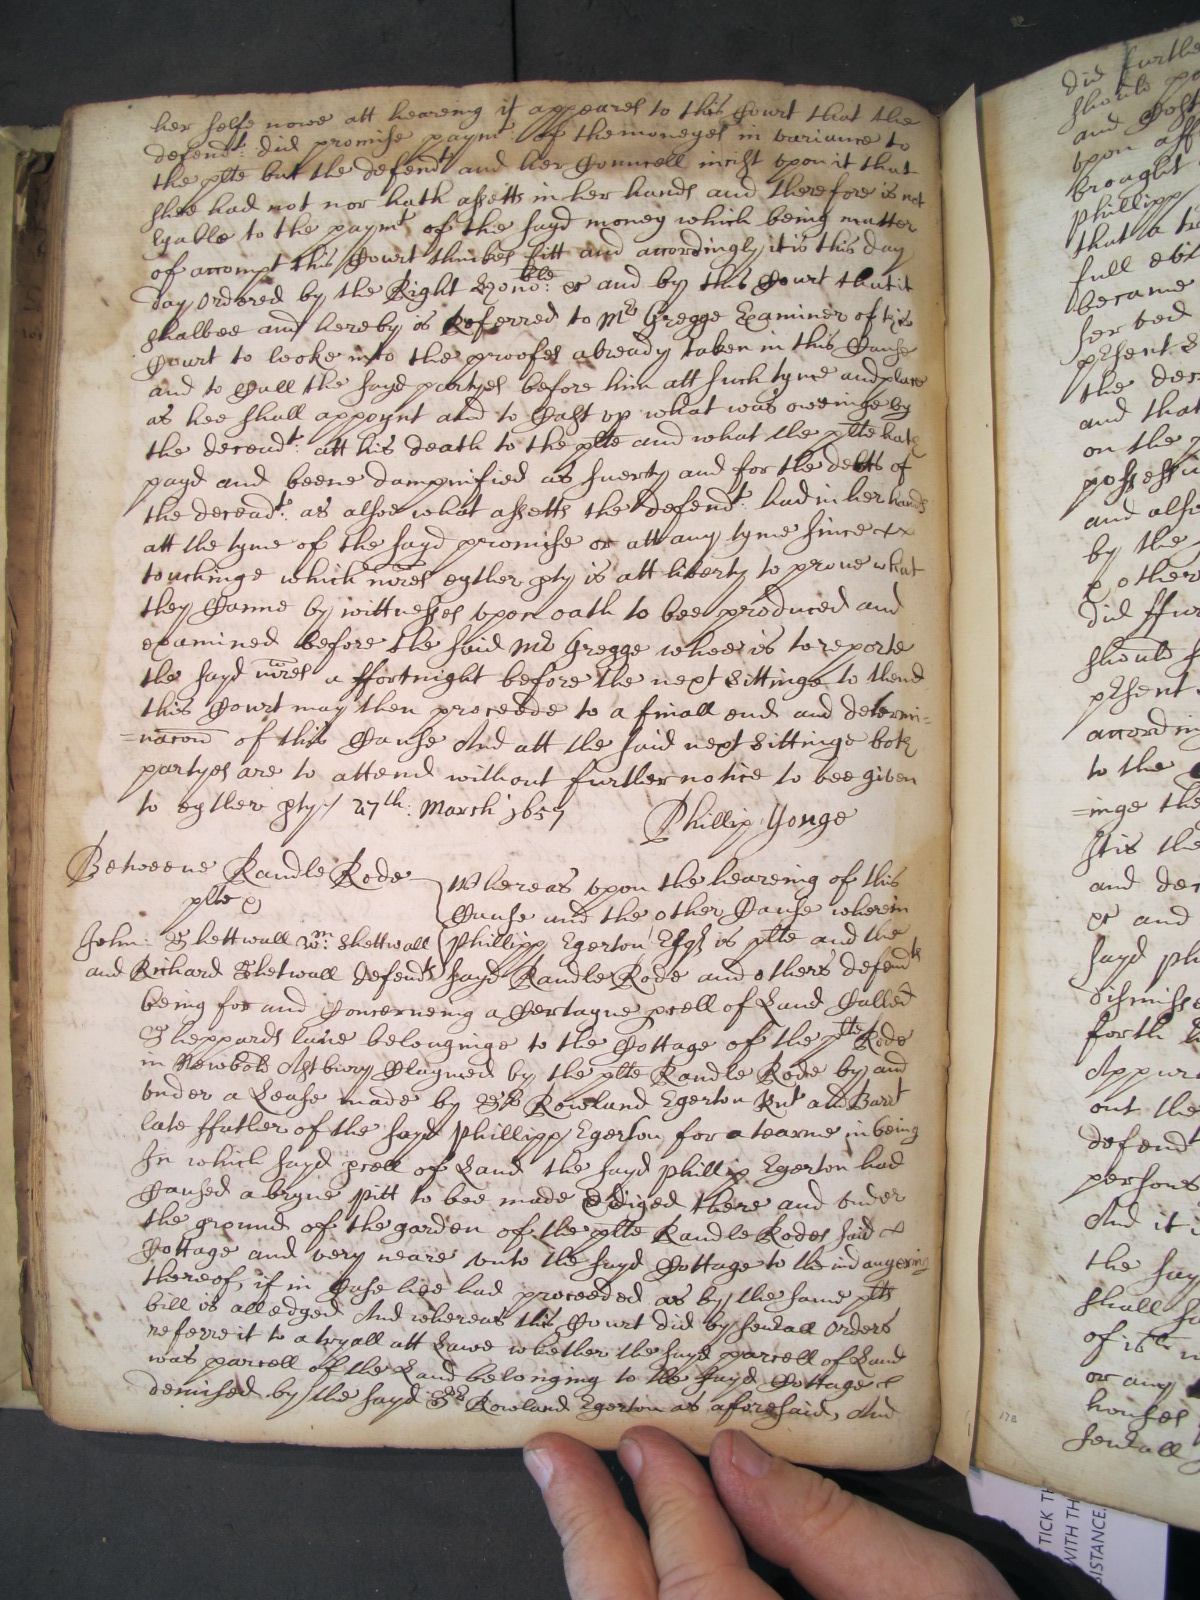 her selfe nowe att heareing it appeares to this Court that the
defendt: did promise paymt of the moneyes in variance to
the plte but the defendt and her Councell insist upon it that
shee had not nor hath assetts in her hands and therefore is not
lyable to the paymt of the sayd money which being matter
of accompt this Court thinkes fitt and accordingly it is this day
day ordered by the Right Hono:ble &c and by this Court that it
shalbee and hereby is Referred to Mr Gregge Examiner of this
Court to looke into the proofes already taken in this Cause
and to Call the sayd partyes before him att such tyme and place
as hee shall appoynt and to Cast up what was oweinge by
the decead:t att his death to the plte and what the plte hath
payd and beene dampnified as suerty and for the debts of
the decead:t as alsoe what assetts the defend:t had in her hands
att the tyme of the sayd promise or att any tyme since
touchinge which mres eyther pty is att liberty to prove what
they Canne by wittnesses upon oath to bee produced and
examined before the said Mr Gregge whoe is to reporte
the sayd mres a ffortnight before the next Sittinge to thend
this Court may then proceede to a finall end and determi=
=nacon of this Cause And att the said next Sittinge both
partyes are to attend without further notice to bee given
to eyther pty / 27th: March 1657 Phillip Yonge
Betweene Randle Rode
plte
John: Shettwall Wm: Shettwall
and Richard Shetwall defendts
Whereas upon the heareing of this
Cause and the other Cause wherein
Phillipp Egerton Esqr is plte and the
sayd Randle Rode and others defendts
being for and Concerneing a Certayne pcell of Land Called
Sheppards lane belonginge to the Cottage of the plte Rode
in Newbold Astbury Claymed by the plte Randle Rode by and
under a Lease made by Sr Rowland Egerton Knt and Barrt
late ffather of the sayd Phillipp Egerton for a tearme in being
In which sayd pcell of Land the sayd Phillip Egerton had
Caused a bryne Pitt to bee made & diged there and under
the ground of the garden of the plte Randle Rodes said
Cottage and very neare unto the sayd Cottage to the indangering
thereof, if in Case hee had proceeded as by the same plts
bill is alledged And whereas this Court did by severall Orders
referre it to a tryall att Lawe whether the sayd parcell of Land
was parcell of the Land belonging to the sayd Cottage
demised by the sayd Sr Rowland Egerton as aforesaid, And
did further
should
and Cost
upon
brought
Phillipp
that a
full
became
her bed
psent
the
and that
on the
possess
and alsoe
by the
other
did
should
psent
according
to the
=inge the
It is the
and
&c and
sayd
dismisse
forth
out the
defendt
persons
And it
the say
shall
of
or any
houses
severall
178
TICK
WITH TH
ISTANCE